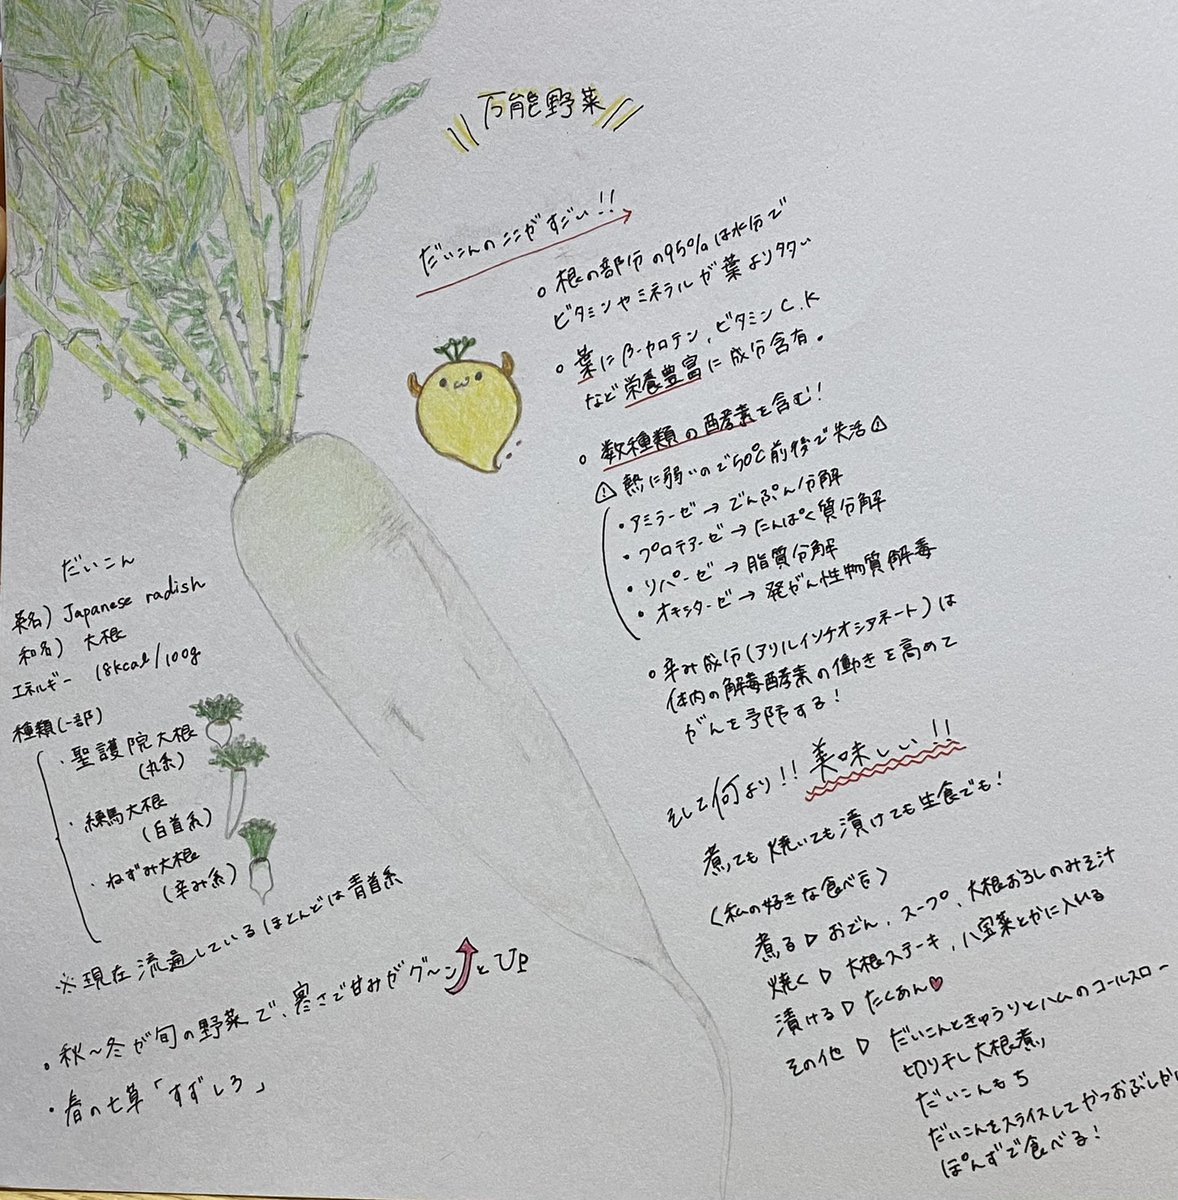 万能野菜
だいこんのここがすごい!!
。根の部分の95%は水分で
ビタミンやミネラルが葉より多い
。葉にβ-カロテン、ビタミンC.K
など栄養豊富に成分含有。
。数種類の酵素を含む!
⚠熱に弱いので50℃前後で失活⚠
・アミラーゼ→でんぷん分解
・プロテアーゼ→たんぱく質分解
・リパーゼ→脂質分解
・オキシターゼ→発がん性物質解毒
。辛み成分(アリルイソチオシアネート)は
体内の解毒酵素の働きを高めて
がんを予防する!
そして何より!!美味しい!!
煮ても焼いても漬けても生食でも!
〈私の好きな食べ方〉
煮る▷おでん、スープ、大根おろしのみそ汁
焼く▷大根ステーキ、八宝菜とかに入れる
漬ける▷たくあん♥
その他▷だいこんときゅうりとハムのコールスロー
切り干し大根煮
だいこんもち
だいこんをスライスしてかつおぶしか
ぽんずで食べる!
だいこん
英名)Japanese radish
和名)大根
エネルギー 18kcal/100g
種類(一部)
・聖護院大根
(丸系)
・練馬大根
(白首系)
・ねずみ大根
(辛み系)
※現在流通しているほとんどは青首系
。秋~冬が旬の野菜で、寒さで甘みがグ~ンとUP
・春の七草「すずしろ」